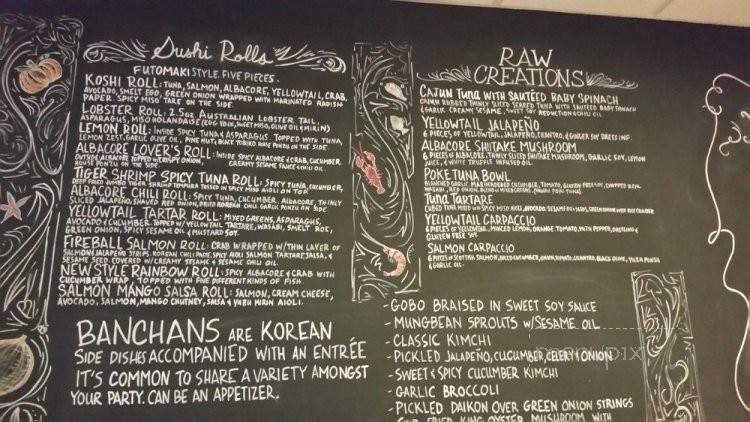 Sushi Rolls
FUTOMAKI STYLE. FIVE PIECES.
KOSHI ROLL: TUNA, SALMON, ALBACORE, YELLOWTAIL, CRAB,
AVOCADO, SMELT EGG, GREEN ONION WRAPPED WITH MARINATED RADISH
PAPER. SPICY MISO TARE ON THE SIDE.
LOBSTER ROLL: 2.5oz AUSTRALIAN LOBSTER TAIL,
ASPARAGUS, MISO HOLANDAISE (EGG YOLK, SWEET MISO, OLIVE OIL & MIRIN)
LEMON ROLL: INSIDE SPICY TUNA & ASPARAGUS. TOPPED WITH TUNA,
LEMON ZEST, GARLIC OLIVE OIL, PINE NUT, BLACK TOBIKO. HOUSE PONZU ON THE SIDE
ALBACORE LOVER'S ROLL: INSIDE SPICY ALBACORE & CRAB, CUCUMBER
OUTSIDE ALBACORE TOPPED W/CRISPY ONION. CREAMY SESAME SAUCE & CHILI OIL.
HOUSE PONZU ON THE SIDE
TIGER SHRIMP SPICY TUNA ROLL: SPICY TUNA, CUCUMBER,
DEEP FRIED JUMBO TIGER SHRIMP TEMPURA TOSSED IN SPICY MISO AIOLI ON TOP
ALBACORE CHILI ROLL: SPICY TUNA, CUCUMBER. ALBACORE, THINLY
SLICED JALAPEÑO, SHAVED RED ONION, DRIED KOREAN CHILI. GARLIC PONZU ON SIDE
YELLOWTAIL TARTAR ROLL: MIXED GREENS, ASPARAGUS,
AVOCADO CUCUMBER. TOPPED W/YELLOWTAIL TARTARE, WASABI, SMELT ROE,
GREEN ONION, SPICY SESAME OIL & MUSTARD SOY.
FIREBALL SALMON ROLL: CRAB WRAPPED W/THIN LAYER OF
SALMON & JALAPEÑO STRIPS. KOREAN CHILI PASTE, SPICY AIOLI SALMON TARTARE, SALSA, &
SESAME SEED. COVERED W/CREAMY SESAME & SESAME CHILI OIL.
NEW STYLE RAINBOW ROLL: SPICY ALBACORE & CRAB WITH
CUCUMBER WRAP. TOPPED WITH FIVE DIFFERENT KINDS OF FISH.
SALMON MANGO SALSA ROLL: SALMON, CREAM CHEESE,
AVOCADO, SALMON, MANGO CHUTNEY, SALSA & YUZU MIRIN AIOLI.
BANCHANS ARE KOREAN
SIDE DISHES ACCOMPANIED WITH AN ENTRÉE
IT'S COMMON TO SHARE A VARIETY AMONGST
YOUR PARTY. CAN BE AN APPETIZER.
RAW
CREATIONS
CAJUN TUNA WITH SAUTÉED BABY SPINACH
CAJUN RUBBED THINLY SLICED SEARED TUNA WITH SAUTEED BABY SPINACH
& GARLIC CREAMY SESAME, SWEET SOY REDUCTION & CHILI OIL
YELLOWTAIL JALAPEÑO
6 PIECES OF YELLOWTAIL, JALAPENO, CILANTRO, & GINGER SOY DRESSING.
ALBACORE SHIITAKE MUSHROOM
6 PIECES OF ALBACORE, THINLY SLICED SHIITAKE MUSHROOM, GARLIC SOY, LEMON
JUICE, & WHITE TRUFFLE INFUSED OIL.
POKE TUNA BOWL
TUNA TARTARE
YELLOWTAIL CARPACCIO
6 PIECES OF YELLOWTAIL, MINCED LEMON, ORANGE, TOMATO,
GLUTEN FREE SOY.
SALMON CARPACCIO
6 PIECES OF SCOTTISH SALMON, DICED CUCUMBER, ONION, TOMATO, CILANTRO, BLACK OLIVE, YUZU PONZU
& GARLIC OIL.
- GOBO BRAISED IN SWEET SOY SAUCE
- MUNGBEAN SPROUTS W/SESAME OIL
- CLASSIC KIMCHI
- PICKLED JALAPEÑO, CUCUMBER, CELERY & ONION
- SWEET & SPICY CUCUMBER KIMCHI
- GARLIC BROCCOLI
- PICKLED DAIKON OVER GREEN ONION STRINGS
FRIED KING OYSTER MUSHROOM WITH
menupix